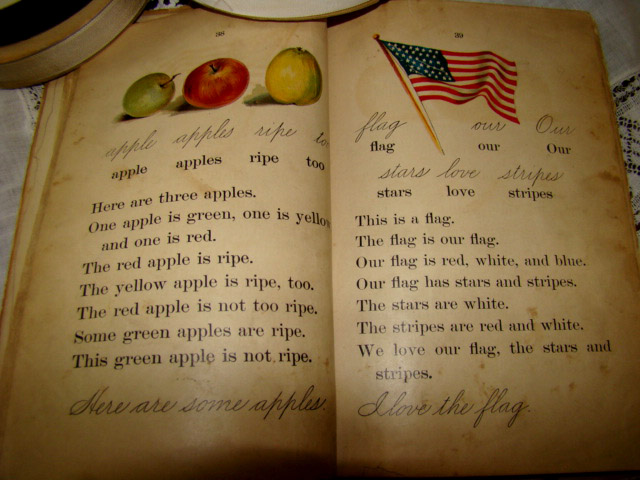 38
apple apples ripe to
apple apples ripe too
Here are three apples.
One apple is green, one is yellow
and one is red.
The red apple is ripe.
The yellow apple is ripe, too.
The red apple is not too ripe.
Some green apples are ripe.
This green apple is not ripe.
Here are some apples.
39
flag our Our
flag our Our
stars love stripes
stars love stripes
This is a flag.
The flag is our flag.
Our flag is red, white, and blue.
Our flag has stars and stripes.
The stars are white.
The stripes are red and white.
We love our flag, the stars and
stripes.
I love the flag.